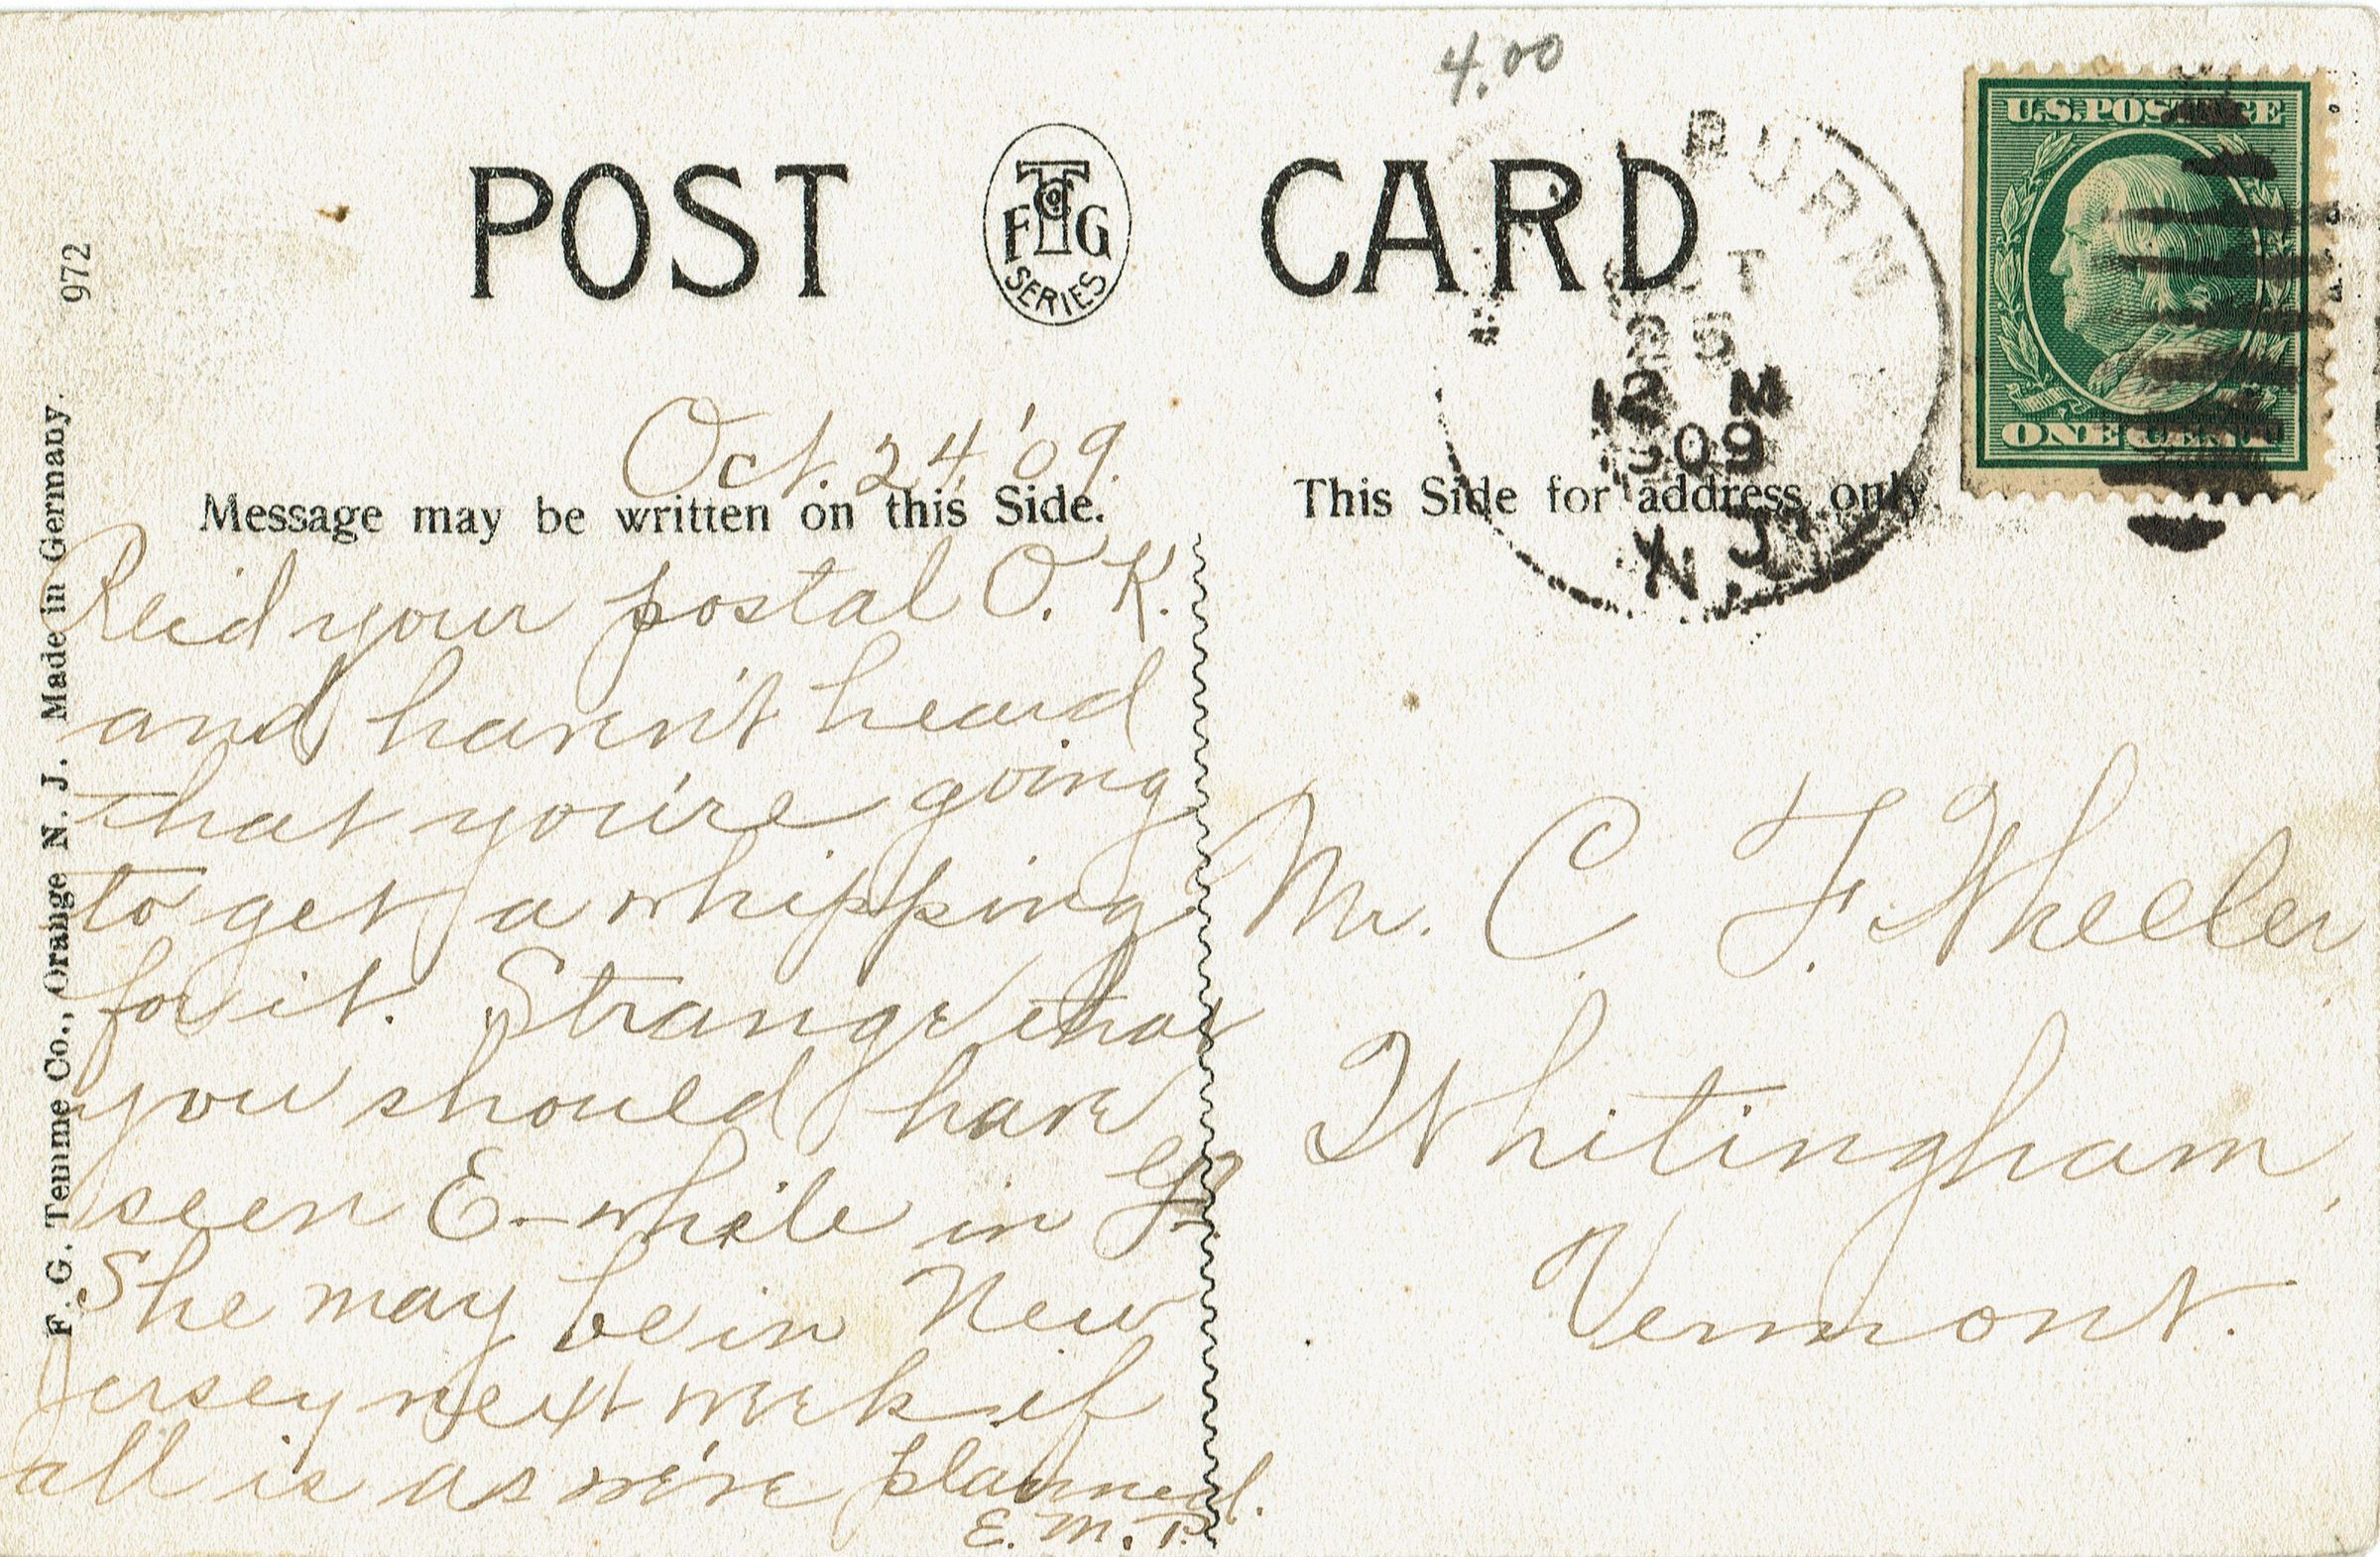 4.00
POST CARD
F T Co G
SERIES
U.S. POSTAGE
ONE CENT
BURN
T
25
12 M
09
N. J.
972
F. G. Temme Co., Orange N. J. Made in Germany.
Oct. 24, '09.
Message may be written on this Side.
This Side for address only
Rec'd your postal O. K.
and haven't heard
that you're going
to get a whipping
for it. Strange that
you should have
seen E- while in
She may be in New
Jersey next week if
all is as we've planned.
E. M. P.
Mr. C. F. Wheeler
Whitingham,
Vermont.